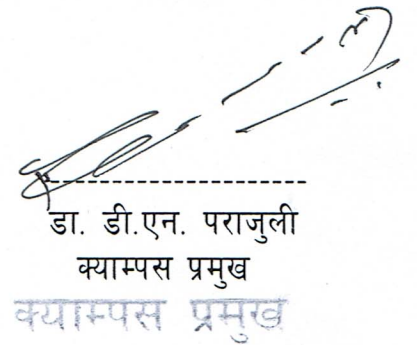 डा. डी.एन. पराजुली
क्याम्पस प्रमुख
क्याम्पस प्रमुख